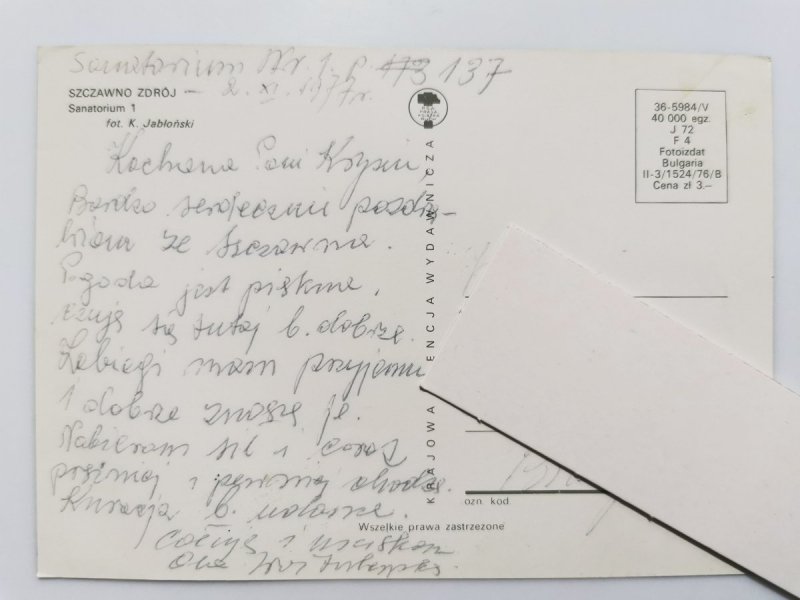 Sanatorium Nr 1. p. 137
SZCZAWNO ZDRÓJ — 2. XI. 1977r.
Sanatorium 1
fot. K. Jabłoński
Kochana Pani Krysiu,
Bardzo serdecznie pozdra-
wiam ze Szczawna.
Pogoda jest piękna,
czuję się tutaj b. dobrze.
Zabiegi mam przyjemne
i dobrze znoszę je.
Nabieram sił i coraz
i pewniej chodzę.
Kuracja b. udana.
Całuję i ściskam
KRAJOWA ENCJA WYDAWNICZA
36-5984/V
40 000 egz.
J 72
F 4
Fotoizdat
Bulgaria
II-3/1524/76/B
Cena zł 3.—
ozn. kod.
Wszelkie prawa zastrzeżone